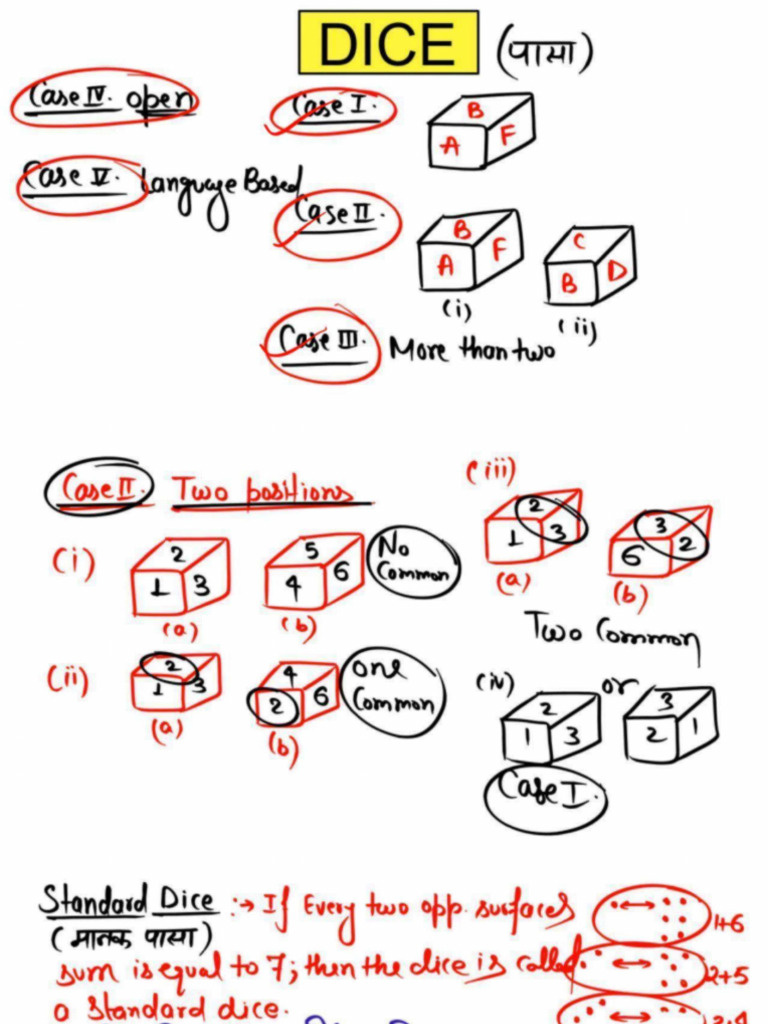 DICE (पासा)
Case IV. open
Case I.
B
A F
Case V. Language Based
Case II.
B
A F
(i)
C
B D
(ii)
Case III. More than two
Case II. Two positions
(i)
2
1 3
(a)
5
4 6
(b)
No
Common
(iii)
2
1 3
(a)
3
6 2
(b)
Two Common
(ii)
2
1 3
(a)
4
2 6
(b)
one
Common
(iv)
2
1 3
or
3
2 1
Case I.
Standard Dice :→ If Every two opp. surfaces
(मानक पासा)
sum is equal to 7; then the dice is called
a standard dice.
1+6
2+5
3+4